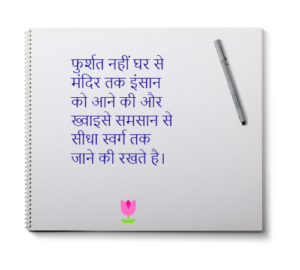 फुर्शत नहीं घर से
मंदिर तक इंसान
को आने की और
ख्वाइसे समसान से
सीधा स्वर्ग तक
जाने की रखते है।